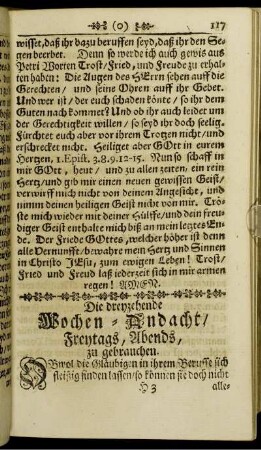 (0) 117
wisset, daß ihr dazu beruffen seyd, daß ihr den Se-
gen beerbet. Denn so werde ich auch gewis aus
Petri Worten Trost/ Fried, und Freude zu erhal-
ten haben: Die Augen des HErrn sehen auff die
Gerechten/ und seine Ohren auff ihr Gebet.
Und wer ist/ der euch schaden könte/ so ihr dem
Guten nach kommet? Und ob ihr auch leidet um
der Gerechtigkeit willen/ so seyd ihr doch seelig.
Fürchtet euch aber vor ihrem Trotzen nicht/ und
erschrecket nicht. Heiliget aber GOtt in eurem
Hertzen, 1. Epist. 3. 8. 9. 12-15. Nun so schaff in
mir GOtt, heut/ und zu allen zeiten, ein rein
Hertz/ und gib mir einen neuen gewissen Geist/
verwirff mich nicht von deinem Angesicht, und
nimm deinen heiligen Geist nicht von mir. Trö-
ste mich wieder mit deiner Hülffe/ und dein freu-
diger Geist enthalte mich biß an mein letztes En-
de. Der Friede GOttes, welcher höher ist denn
alle Vernunfft, bewahre mein Hertz und Sinnen
in Christo JEsu, zun ewigen Leben! Trost/
Fried und Freud laß iederzeit sich in mir armen
regen! AMEN.
Die dreyzehende
Wochen-Andacht/
Freytags, Abends,
zu gebrauchen.
OBwol die Gläubigen in ihrem Beruffe sich
fleißig finden lassen/ so können sie doch nicht
H 3 alle-